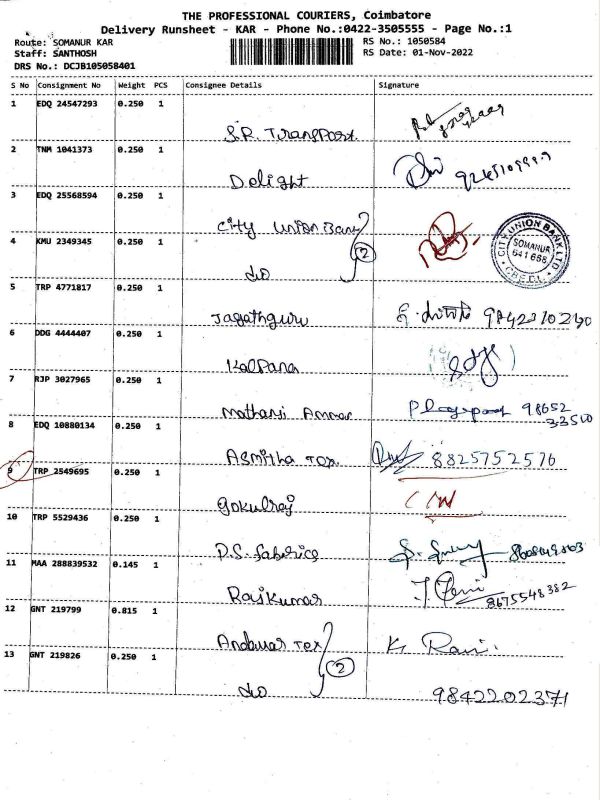 THE PROFESSIONAL COURIERS, Coimbatore
Delivery Runsheet - KAR - Phone No.:0422-3505555 - Page No.:1
Route: SOMANUR KAR RS No.: 1050584
Staff: SANTHOSH RS Date: 01-Nov-2022
DRS No.: DCJB105058401
S No Consignment No Weight PCS Consignee Details Signature
1 EDQ 24547293 0.250 1
S.R. Transport.
2 TNM 1041373 0.250 1
Delight
3 EDQ 25568594 0.250 1
City Union Bany
CITY UNION BANK LTD
SOMANUR
641 668
4 KMU 2349345 0.250 1
2
do
5 TRP 4771817 0.250 1
Jagathguru 98423 10230
6 DDG 4444407 0.250 1
Kalpana
7 RJP 3027965 0.250 1
Mathari Amman 98652
33500
8 EDQ 10880134 0.250 1
Asmitha Tex. 8825752576
9 TRP 2549695 0.250 1
Gokulraj
10 TRP 5529436 0.250 1
D.S. Fabrics
11 MAA 288839532 0.145 1
Rajkumar 8675548382
12 GNT 219799 0.815 1
Andavar Tex K. Ravi.
13 GNT 219826 0.250 1
2
do 9842202371